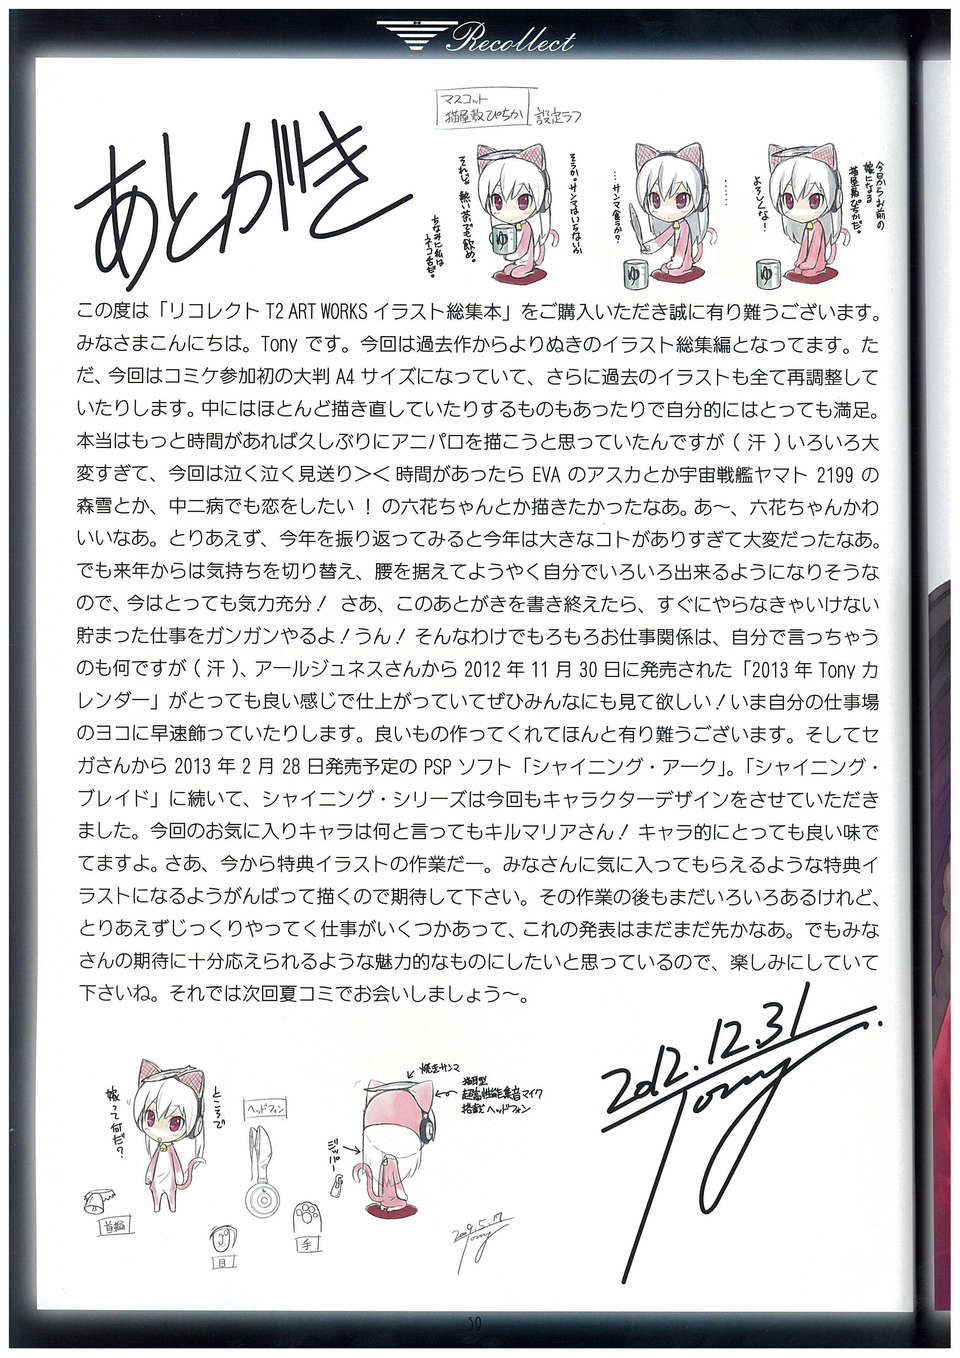 Recollect
マスコット
猫屋敷ぴちか 設定ラフ
あとがき
今日からお前の
嫁になる
猫屋敷ぴちかだ。
よろしくな!
……
……
サンマ食うか?
そうか。サンマはいらないか
それじゃ 熱い茶でも飲め。
ちなみに私は
ネコ舌だ。
ゆ
ゆ
ゆ
この度は「リコレクト T2 ART WORKS イラスト総集本」をご購入いただき誠に有り難うございます。
みなさまこんにちは。Tony です。今回は過去作からよりぬきのイラスト総集編となってます。た
だ、今回はコミケ参加初の大判 A4 サイズになっていて、さらに過去のイラストも全て再調整して
いたりします。中にはほとんど描き直していたりするものもあったりで自分的にはとっても満足。
本当はもっと時間があれば久しぶりにアニパロを描こうと思っていたんですが ( 汗 ) いろいろ大
変すぎて、今回は泣く泣く見送り＞＜ 時間があったら EVA のアスカとか宇宙戦艦ヤマト 2199 の
森雪とか、中二病でも恋をしたい ! の六花ちゃんとか描きたかったなあ。あ〜、六花ちゃんかわ
いいなあ。とりあえず、今年を振り返ってみると今年は大きなコトがありすぎて大変だったなあ。
でも来年からは気持ちを切り替え、腰を据えてようやく自分でいろいろ出来るようになりそうな
ので、今はとっても気力充分! さあ、このあとがきを書き終えたら、すぐにやらなきゃいけない
貯まった仕事をガンガンやるよ!うん! そんなわけでもろもろお仕事関係は、自分で言っちゃう
のも何ですが ( 汗 )、アールジュネスさんから 2012 年 11 月 30 日に発売された「2013 年 Tony カ
レンダー」がとっても良い感じで仕上がっていてぜひみんなにも見て欲しい!いま自分の仕事場
のヨコに早速飾っていたりします。良いもの作ってくれてほんと有り難うございます。そしてセ
ガさんから 2013 年 2 月 28 日発売予定の PSP ソフト「シャイニング・アーク」。「シャイニング・
ブレイド」に続いて、シャイニング・シリーズは今回もキャラクターデザインをさせていただき
ました。今回のお気に入りキャラは何と言ってもキルマリアさん! キャラ的にとっても良い味で
てますよ。さあ、今から特典イラストの作業だー。みなさんに気に入ってもらえるような特典イ
ラストになるようがんばって描くので期待して下さい。その作業の後もまだいろいろあるけれど、
とりあえずじっくりやってく仕事がいくつかあって、これの発表はまだまだ先かなあ。でもみな
さんの期待に十分応えられるような魅力的なものにしたいと思っているので、楽しみにしていて
下さいね。それでは次回夏コミでお会いしましょう〜。
2012.12.31
Tony
ところで
嫁って何だ?
ヘッドフォン
焼きサンマ
猫耳型
超高性能集音マイク
搭載ヘッドフォン
ジッパー
首輪
目
手
2009.5.17
Tony
59